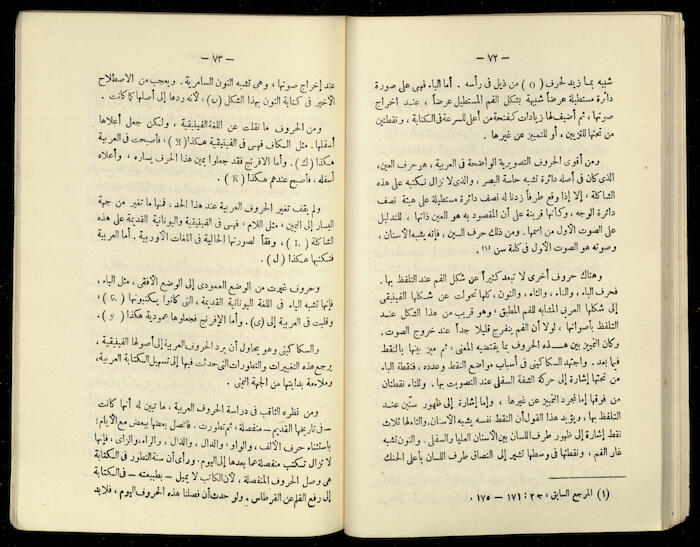 — ٧٢ —
شبيه بما زيد لحرف ( O ) من ذيل في رأسه . أما الياء فهى على صورة
دائرة مستطيلة عرضاً شبيهة بشكل الفم المستطيل عرضاً ، عند اخراج
صوتها ، ثم أضيف لها زيادات كفتحة من أعلى للسرعة في الكتابة ، ونقطتين
من تحتها للتزيين ، أو للتمييز عن غيرها .
ومن أقوى الحروف التصويرية الواضحة في العربية ، هو حرف العين ،
الذى كان فى أصله دائرة تشبه حاسة البصر ، والذى لا نزال نكتبه على هذه
الشاكلة ، إلا إذا وقع طرفاً زدنا له نصف دائرة مستطيلة على هيئة نصف
دائرة الوجه ، وكأنها قرينة على أن المقصود به هو العين ذاتها ، للتدليل
على الصوت الأول من اسمها . ومن ذلك حرف السين ، فإنه يشبه الأسنان ،
وصوته هو الصوت الأول فى كلمة سن (١) .
وهناك حروف أخرى لا تبعد كثيراً عن شكل الفم عند التلفظ بها .
فحرف الباء ، والتاء ، والثاء ، والنون ، كلها تحولت عن شكلها الفينيقى
إلى شكلها العربى المشابه للفم المطبق ، وهو قريب من هذا الشكل عند
التلفظ بأصواتها ، لولا أن الفم ينفرج قليلا جداً عند خروج الصوت .
وكان التمييز بين هذه الحروف بما يقتضيه المعنى ، ثم ميز بينها بالنقط
فيما بعد . واجتهد السكاكينى فى أسباب مواضع النقط وعدده ، فنقطة الباء
من تحتها إشارة إلى حركة الشفة السفلى عند التصويت بها . وللتاء نقطتان
من فوقها إما لمجرد التمييز عن غيرها ، وإما إشارة إلى ظهور سنّين عند
التلفظ بها ، ويؤيد هذا القول أن النقط نفسه يشبه الأسنان والثاء لها ثلاث
نقط إشارة إلى ظهور طرف اللسان بين الأسنان العليا والسفلى . والنون تشبه
غار الفم ، ونقطتها فى وسطها تشير إلى التصاق طرف اللسان بأعلى الحنك
(١) المرجع السابق ، ج ٢ : ١٧١ — ١٧٥ .
— ٧٣ —
عند إخراج صوتها ، وهى تشبه النون السامرية . ويعجب من الاصطلاح
الأخير فى كتابة النون بهذا الشكل (ن) ، لأنه ردها إلى أصلها كما كانت .
ومن الحروف ما نقلت عن اللغة الفينيقية ، ولكن جعل أعلاها
أسفلها . مثل الكاف فهى فى الفينيقية هكذا ، فأصبحت فى العربية
هكذا ( ك ) . أما الافرنج فقد جعلوا يمين هذا الحرف يساره ، وأعلاه
أسفله ، فأصبح عندهم هكذا ( K ) .
ولم يقف تغير الحروف العربية عند هذا الحد ، فمنها ما تغير من جهة
اليسار إلى اليمين ، مثل اللام ؛ فهى فى الفينيقية واليونانية القديمة على هذه
الشاكلة ( L ) ، وفقاً لصورتها الحالية فى اللغات الأوربية . أما العربية
فنكتبها هكذا ( ل ) .
وحروف غيرت من الوضع العمودى إلى الوضع الأفقى ، مثل الياء ،
فإنها تشبه الياء فى اللغة اليونانية القديمة ، التى كانوا يكتبونها ،
وقلبت فى العربية إلى (ى) . وأما الإفرنج فجعلوها عمودية هكذا ( y ) .
والسكاكينى وهو يحاول أن يرد الحروف العربية إلى أصولها الفينيقية ،
يرجع هذه التغييرات والتطورات التى حدثت فيها إلى تسهيل الكتابة العربية ،
وملاءمة بدايتها من الجهة اليمنى .
ومن نظره الثاقب فى دراسة الحروف العربية ، ما تبين له أنها كانت
— فى تاريخها القديم — منفصلة ، ثم تطورت . فاتصل بعضها ببعض مع الأيام ؛
باستثناء حرف الألف ، والواو ، والدال ، والذال ، والراء ، والزاى ، فإنها
لا تزال تكتب منفصلة عما بعدها إلى اليوم . ورأى أن سنة التطور فى الكتابة
هى وصل الحروف المنفصلة ، لأن الكاتب لا يميل — بطبيعته — فى الكتابة
إلى رفع القلم عن القرطاس . ولو حدث أن فصلنا هذه الحروف اليوم ، فلابد